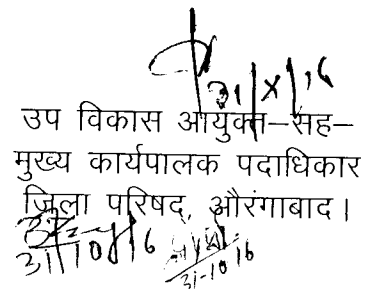 31/X/16
उप विकास आयुक्त–सह–
मुख्य कार्यपालक पदाधिकार
जिला परिषद्, औरंगाबाद।
31/10/16
31-10-16